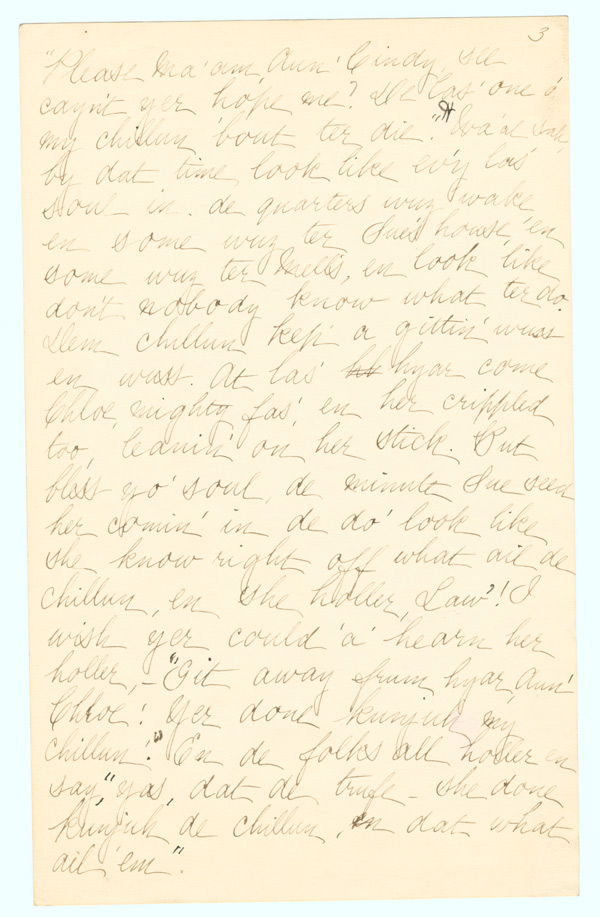 3
"Please Ma'am, Aun' Cindy, see
cayn't yer hope me? De las' one o'
my chillun 'bout ter die." Wa'al sah,
by dat time, look like ev'y las'
soul in de quarters wuz wake
en some wuz ter Sue's house, en
some wuz ter Mells, en look like
don't nobody know what ter do.
Dem chillun kep' a gittin' wuss
en wuss. At las' hyar come
Chloe, mighty fas', en her crippled
too, leanin' on her stick. But
bless yo' soul, de minute Sue seen
her comin' in de do' look like
she know right off what ail de
chillun, en she holler, Law'! I
wish yer could 'a' hearn her
holler,- "Git away frum hyar Aun'
Chloe! Yer done kunjuh my
chillun!" En de folks all holler en
say, "yas, dat de trufe - she done
kunjuh de chillun, en dat what
ail 'em".